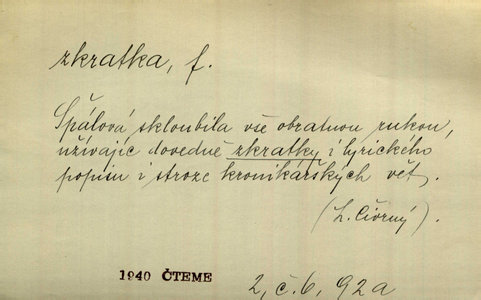 zkratka, f.
Spálová skloubila vše obratnou rukou,
užívajíc dovedně zkratky i lyrického
popisu i stroze kronikářských vět.
(L. Čivrný).
1940 ČTEME
2, č. 6, 92a